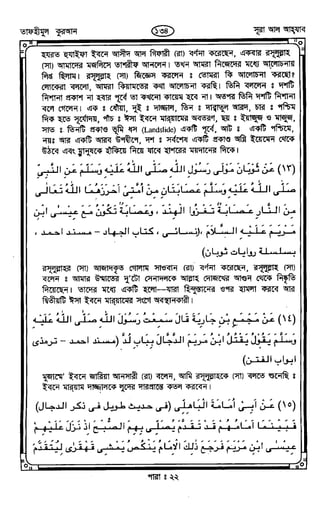 তাফহীমুল কুরআন
১৩৪
সূরা আল আহযাব
হযরত হুযাইফা ইবনে আসীদ আল গিফারী (রা) বর্ণনা করেছেন, একবার রসূলুল্লাহ
(সা) আমাদের মজলিসে তাশরীফ আনলেন। তখন আমরা নিজেদের মধ্যে আলোচনায়
লিপ্ত ছিলাম। রসূলুল্লাহ (সা) জিজ্ঞেস করলেন : তোমরা কি আলোচনা করছো?
লোকেরা বললো, আমরা কিয়ামতের কথা আলোচনা করছি। তিনি বললেন : দশটি
নিশানা প্রকাশ না হবার পূর্বে তা কখনো কায়েম হবে না। অতপর তিনি দশটি নিশানা
বলে গেলেন। এক : ধোঁয়া, দুই : দাজ্জাল, তিন : দাব্বাতুল আরদ, চার : পশ্চিম
দিক হতে সূর্যোদয়, পাঁচ : ঈসা ইবনে মারয়ামের অবতরণ, ছয় : ইয়াজুজ ও মাজুজ,
সাত : তিনটি প্রকাণ্ড ভূমি ধস (Landslide) একটি পূর্বে, আট : একটি পশ্চিমে,
নয়: আর একটি আরব উপদ্বীপে, দশ : সর্বশেষ একটি প্রকাণ্ড অগ্নি ইয়েমেন থেকে
উঠবে এবং মানুষকে হাঁকিয়ে নিয়ে যাবে হাশরের ময়দানের দিকে।
(١٣) عن ثوبان مولى رسول الله صلى الله عليه وسلم عن النبى
صلى الله عليه وسلم عصابتان من أمتى أحرزهما الله تعالى
من النار عصابة تغزوا الهند ، وعصابة تكون مع عيسى ابن
مريم عليه السلام ، (نسائى ، كتاب الجهاد – مسند احمد ،
بسلسلة روايات ثوبان)
রসূলুল্লাহর (সা) আজাদকৃত গোলাম সাওবান (রা) বর্ণনা করেছেন, রসূলুল্লাহ (সা)
বলেন : আমার উম্মতের দু'টো সেনাদলকে আল্লাহ দোজখের আগুন থেকে নিষ্কৃতি
দিয়েছেন। তাদের মধ্যে একটি হলো—যারা হিন্দুস্তানের ওপর হামলা করবে আর
দ্বিতীয়টি ঈসা ইবনে মারয়ামের সংগে অবস্থানকারী।
(١٤) عن مجمع بن جارية قال سمعت رسول الله صلى الله عليه
وسلم يقول يقتل ابن مريم الدجال بباب لد (مسند احمد – ترمذى
ابواب الفتن)
মুজাম্মে' ইবনে জারিয়া আনসারী (রা) বলেন, আমি রসূলুল্লাহকে (সা) বলতে শুনেছি :
ইবনে মারয়াম দাজ্জালকে লুদের দ্বারপ্রান্তে কতল করবেন।
(١٥) عن أبى أمامة الباهلى (فى حديث طويل فى ذكر الدجال)
فبينما امامهم قد تقدم يصلى بهم الصبح إذ نزل عليهم
عيسى ابن مريم فرجع ذلك الامام ينكص يمشى قهقرى ليتقدم
পারা : ২২